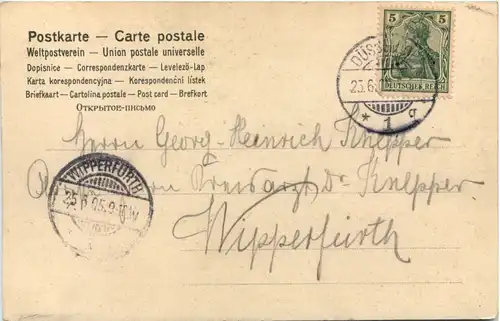 Postkarte — Carte postale
Weltpostverein — Union postale universelle
Dopisnice — Correspondenzkarte — Levelező-Lap
Karta korespondencyjna — Korespondenční lístek
Briefkaart — Cartolina postale — Post card — Brefkort
Открытое-письмо
5 5
DEUTSCHES REICH
1 g
Herrn Georg-Heinrich Knepper
Kreisarzt Dr Knepper
Wipperfürth
WIPPERFÜRTH
25.6.05.9-10V